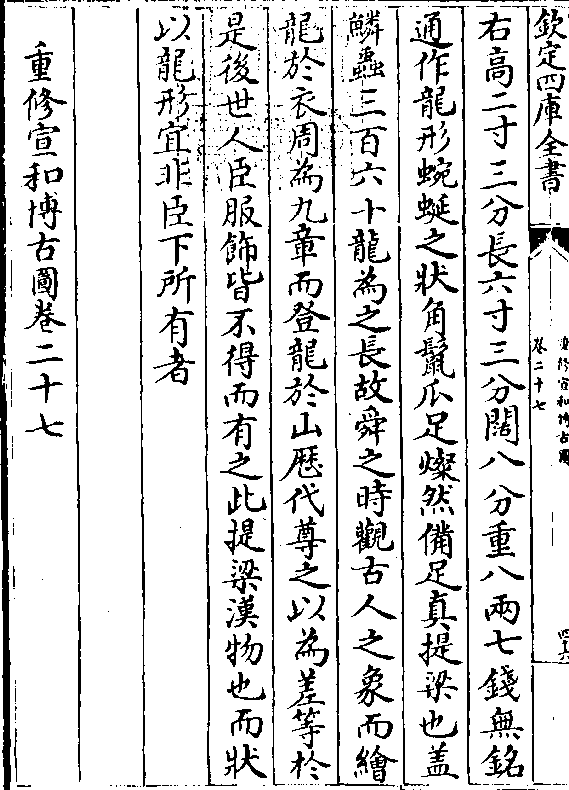 欽定四庫全書
重修宣和博古圖
卷二十七
右高二寸三分長六寸三分闊八分重八兩七錢無銘
通作龍形蜿蜒之狀角鬛爪足燦然備足真提梁也盖
鱗蟲三百六十龍為之長故舜之時觀古人之象而繪
龍於衣周為九章而登龍於山歷代尊之以為差等於
是後世人臣服飾皆不得而有之此提梁漢物也而狀
以龍形宜非臣下所有者
重修宣和博古圖卷二十七